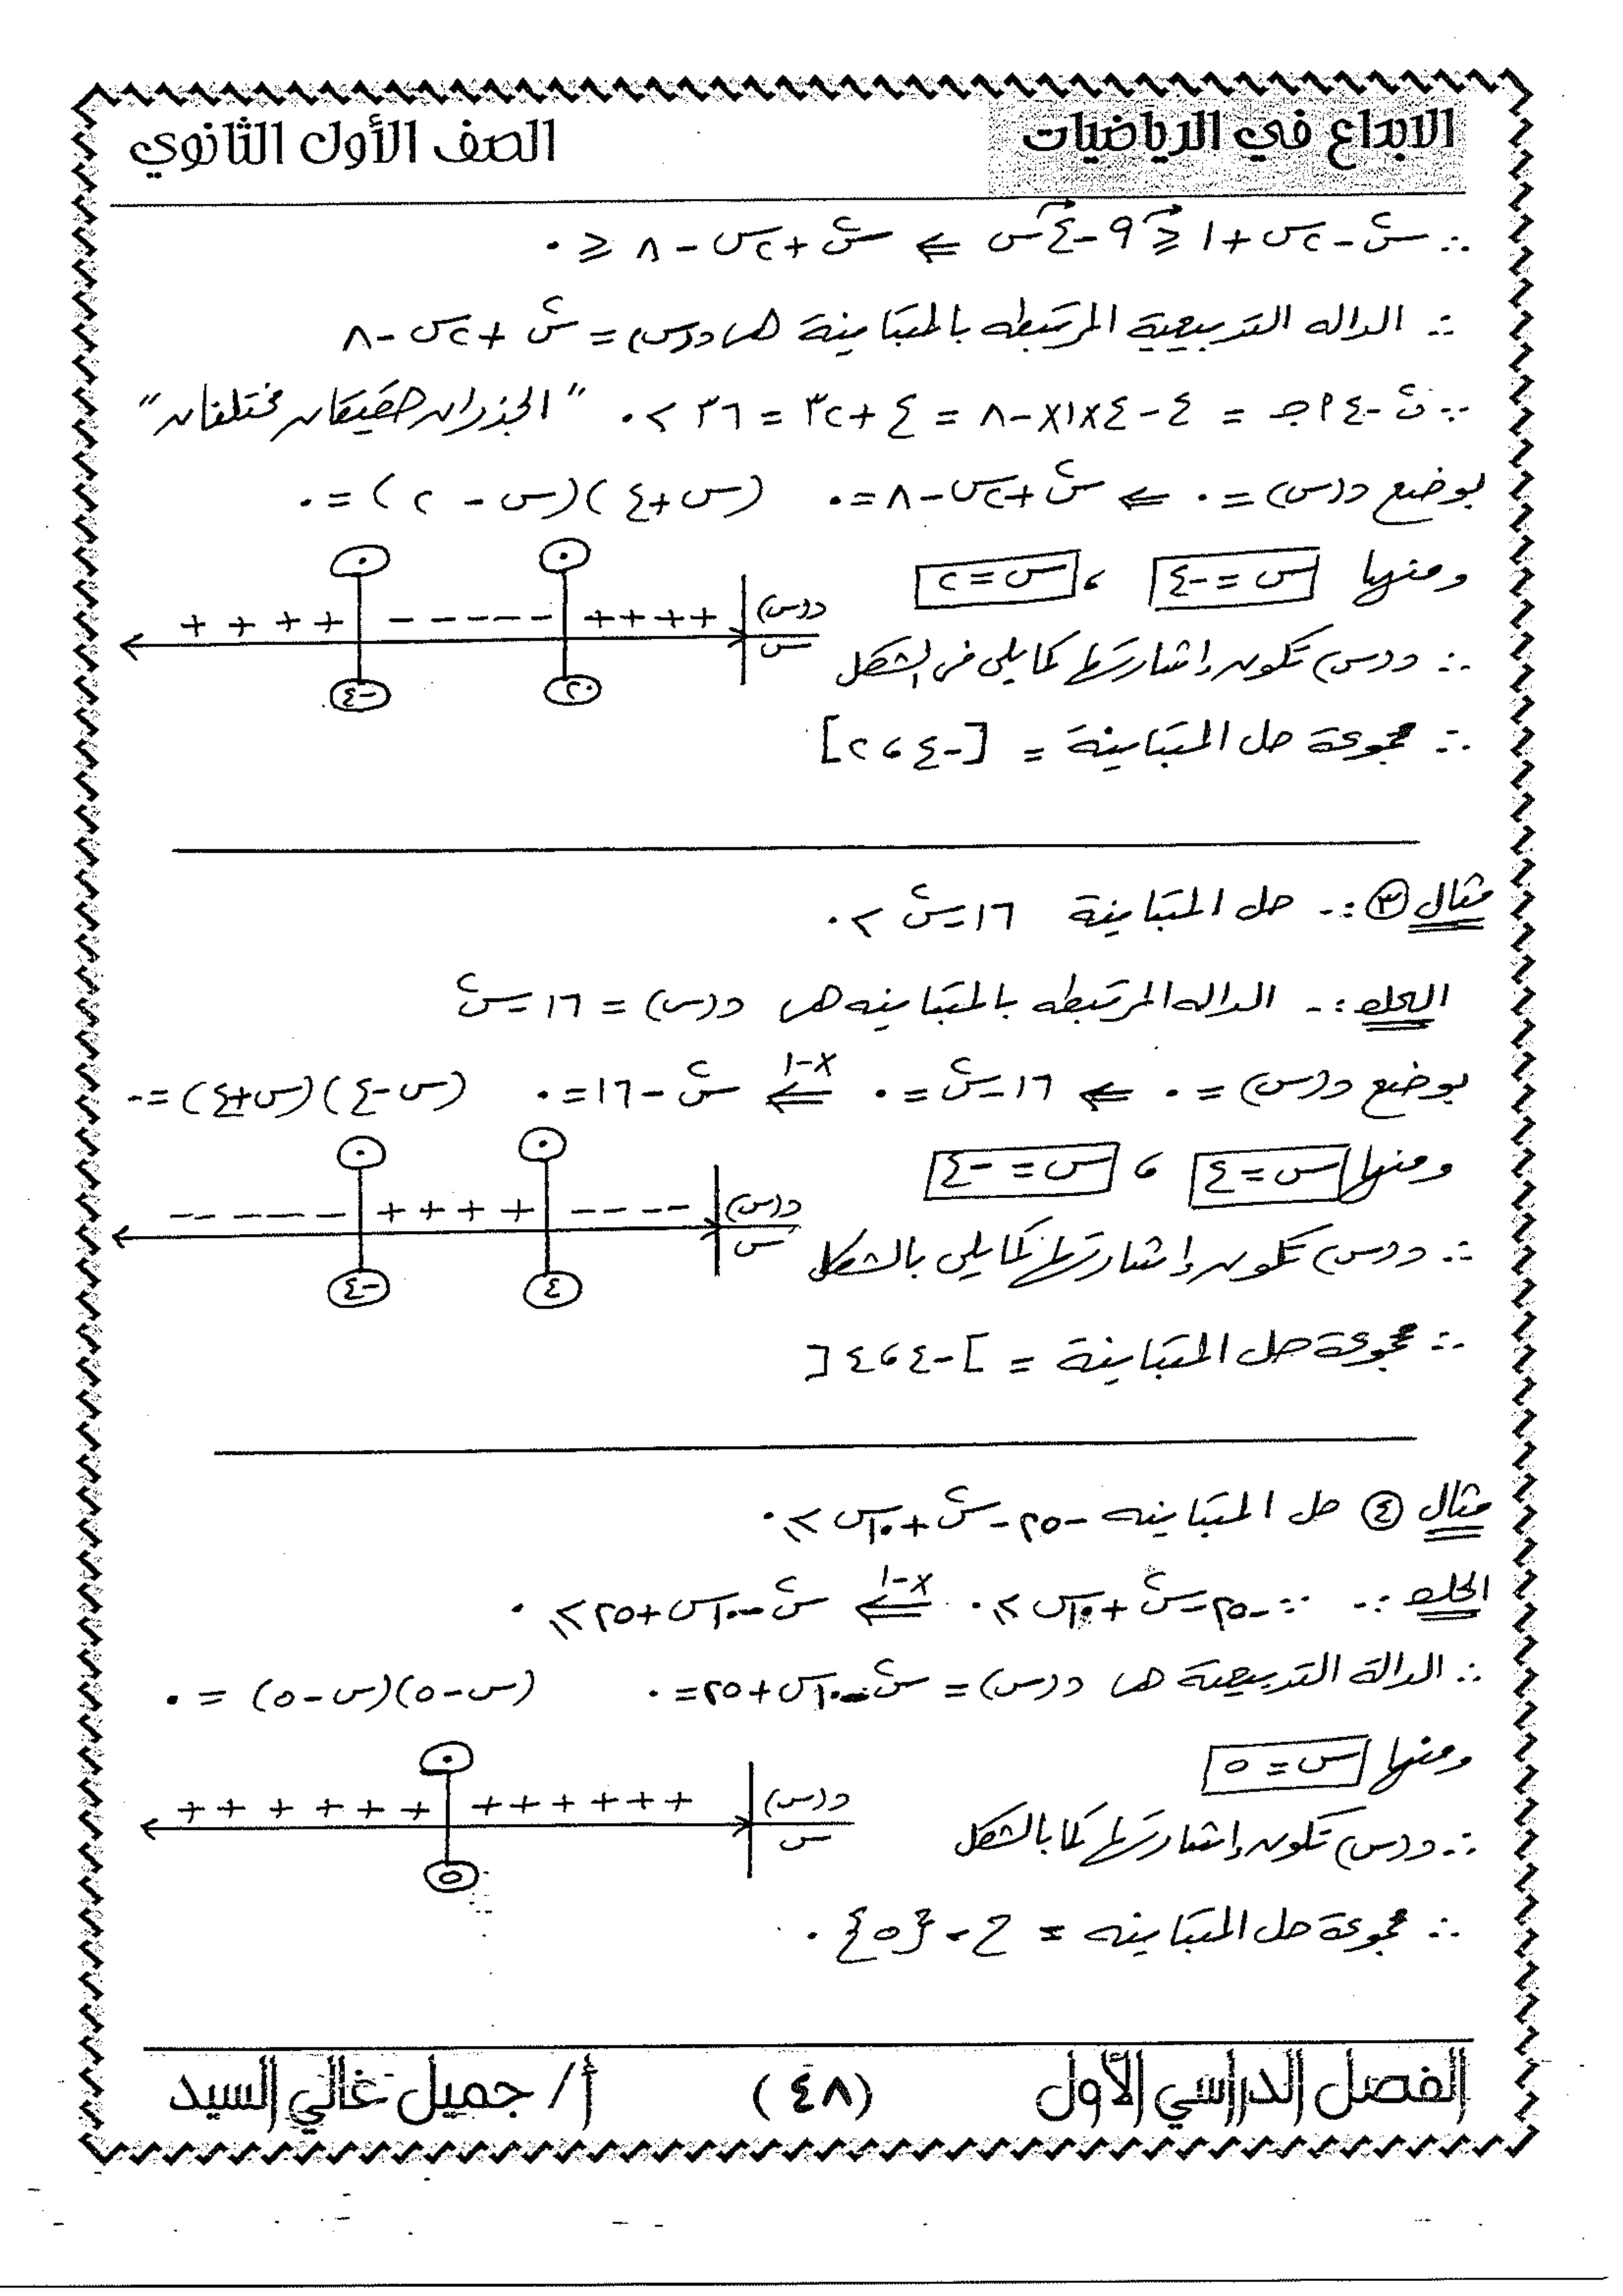 الابداع في الرياضيات
الصف الأول الثانوي
∴ س² - ٢س + ١ ≤ ٩ - ٤س ⇐ س² + ٢س - ٨ ≤ ٠
∴ الداله التربيعية المرتبطه بالمتباينة هى د(س) = س² + ٢س - ٨
∵ ب² - ٤أجـ = ٤ - ٤×١×-٨ = ٤ + ٣٢ = ٣٦ > ٠ "الجذران حقيقيان مختلفان"
بوضع د(س) = ٠ ⇐ س² + ٢س - ٨ = ٠ (س + ٤)(س - ٢) = ٠
ومنها س = -٤ ، س = ٢
∴ د(س) تكون إشارتها كمايلى فى الشكل
د(س) ++++ ٠ ----- ٠ ++++
س ٢ -٤
∴ مجموعة حل المتباينة = [-٤ ، ٢]
مثال ٣ :- حل المتباينة ١٦ - س² > ٠
الحل :- الداله المرتبطه بالمتباينه هى د(س) = ١٦ - س²
بوضع د(س) = ٠ ⇐ ١٦ - س² = ٠ ⇐ ×-١ س² - ١٦ = ٠ (س - ٤)(س + ٤) = ٠
ومنها س = ٤ ، س = -٤
∴ د(س) تكون إشارتها كمايلى بالشكل
د(س) ---- ٠ ++++ ٠ ------
س ٤ -٤
∴ مجموعة حل المتباينة = ]-٤ ، ٤[
مثال ٤ حل المتباينه -٢٥ - س² + ١٠س ≥ ٠
الحل :- ∵ -٢٥ - س² + ١٠س ≥ ٠ ⇐ ×-١ س² - ١٠س + ٢٥ ≥ ٠
∴ الدالة التربيعية هى د(س) = س² - ١٠س + ٢٥ = ٠ (س - ٥)(س - ٥) = ٠
ومنها س = ٥
∴ د(س) تكون إشارتها كما بالشكل
د(س) ++++++ ٠ ++++++
س ٥
∴ مجموعة حل المتباينه = ح - {٥} .
الفصل الدراسي الأول
(٤٨)
أ/ جميل غالي السيد